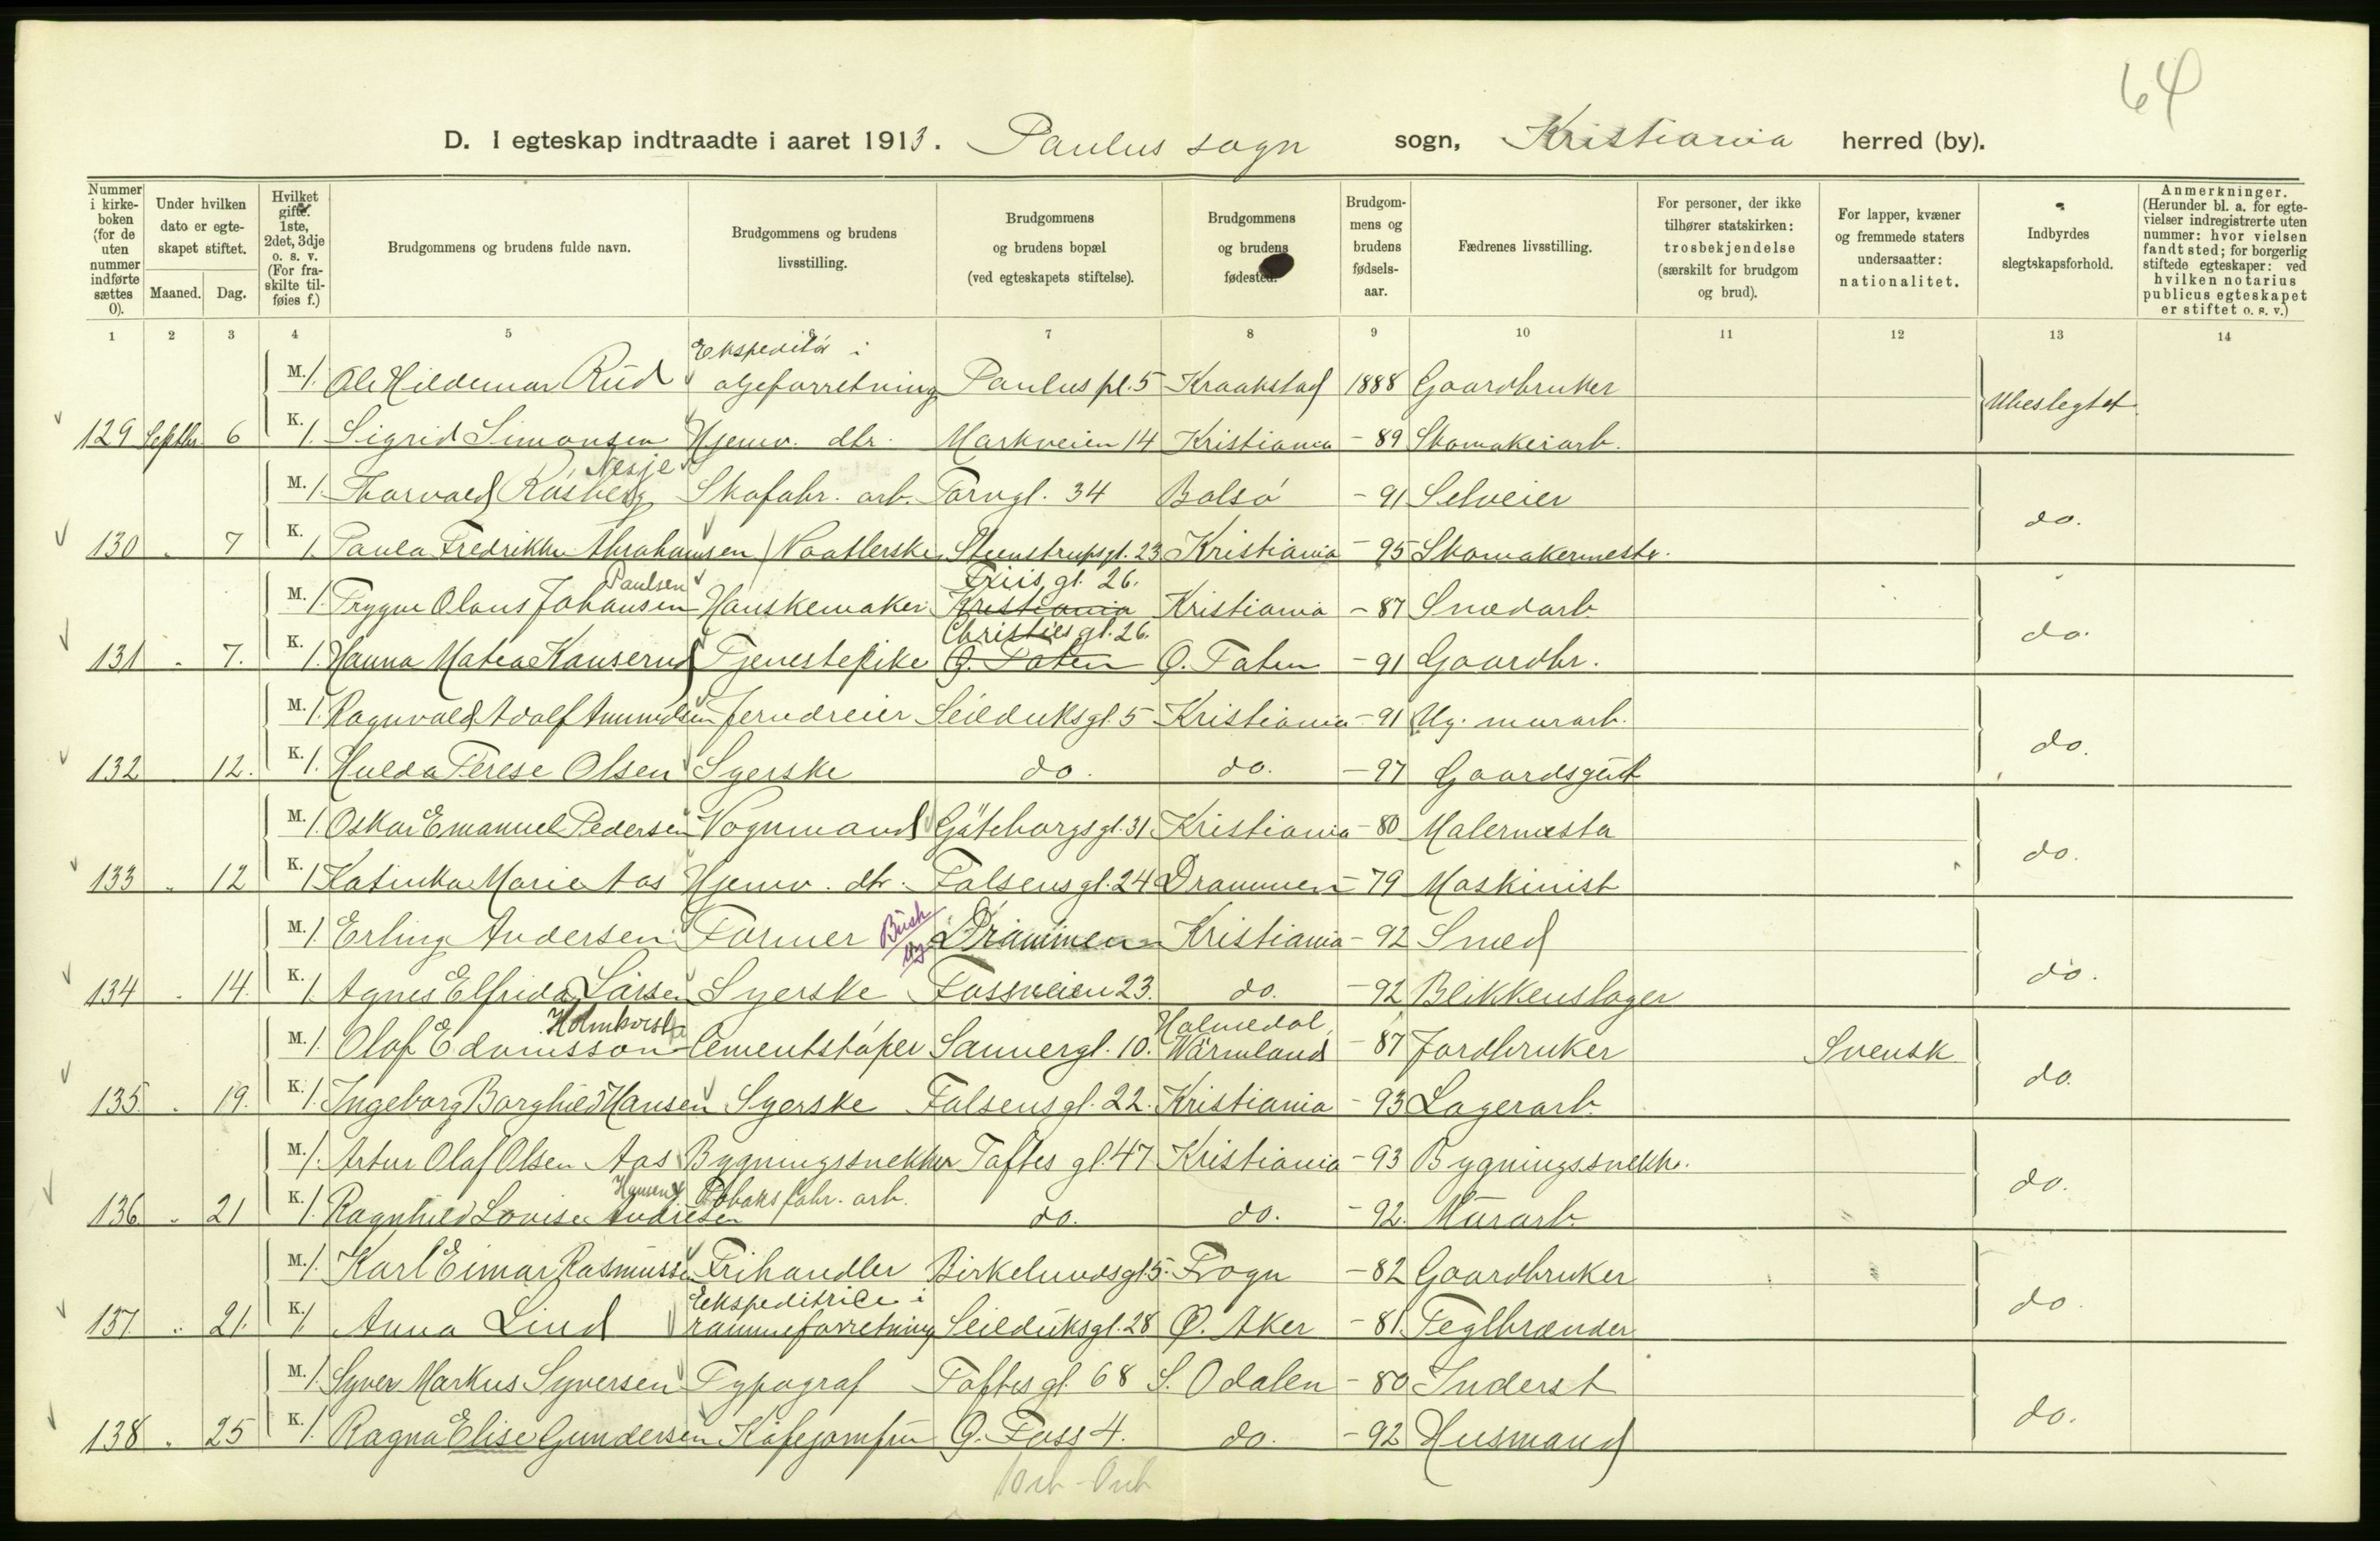 64
D. I egteskap indtraadte i aaret 1913. Paulus sogn sogn, Kristiania herred (by).
Nummer i kirkeboken (for de uten nummer indførte sættes 0).
Under hvilken dato er egteskapet stiftet.
Maaned. Dag.
Hvilket gifte. 1ste, 2det, 3dje o. s. v. (For fraskilte tilføies f.)
Brudgommens og brudens fulde navn.
Brudgommens og brudens livsstilling.
Brudgommens og brudens bopæl (ved egteskapets stiftelse).
Brudgommens og brudens fødested.
Brudgommens og brudens fødselsaar.
Fædrenes livsstilling.
For personer, der ikke tilhører statskirken: trosbekjendelse (særskilt for brudgom og brud).
For lapper, kvæner og fremmede staters undersaatter: nationalitet.
Indbyrdes slegtskapsforhold.
Anmerkninger. (Herunder bl. a. for egtevielser indregistrerte uten nummer: hvor vielsen fandt sted; for borgerlig stiftede egteskaper: ved hvilken notarius publicus egteskapet er stiftet o. s. v.)
1 2 3 4 5 6 7 8 9 10 11 12 13 14
Ekspeditör i
M. 1. Ole Hildemar Rud oljeforretning Paulus pl. 5 Kraakstad 1888 Gaardbruker
Ubeslegtet
129 Septbr. 6 K. 1. Sigrid Simonsen Hjemv. dtr. Markveien 14 Kristiania - 89 Skomakerarb.
Nesje
M. 1. Thorvald Rösberg Skofabr. arb. Torvgl. 34 Bolsö - 91 Selveier
do.
130 " 7 K. 1. Paula Fredrikke Abrahamsen Vaatlerske Steenstrupsgt. 23 Kristiania - 95 Skomakermestr.
Paulsen Friis gl. 26.
M. 1. Trygve Olaus Johansen Hanskemaker Kristiania Kristiania - 87 Smedarb.
Christies gl. 26.
do.
131 " 7. K. 1. Hanna Matea Kauserud Tjenestepike Ö. Toten Ö. Toten - 91 Gaardbr.
M. 1. Ragnvald Adolf Amundsen Jerndreier Seilduksgl. 5 Kristiania - 91 Ug. murarb.
do.
132 " 12. K. 1. Hulda Terese Olsen Syerske do. do. - 97 Gaardsgut
M. 1. Oskar Emanuel Pedersen Vognmand Göteborgsgl. 31 Kristiania - 80 Malermester
do.
133 " 12 K. 1 Katinka Marie Aas Hjemv. dtr. Falsens gl. 24 Drammen - 79 Maskinist
M. 1. Erling Andersen Former Drammen Kristiania - 92 Smed
do.
134 " 14. K. 1. Agnes Elfrida Larsen Syerske Fossveien 23. do. - 92 Blikkenslager
Holmkvist Holmedal,
M. 1. Olof Edvinsson Cementstöper Sannergl. 10. Wärmland - 87 Jordbruker Svensk
do.
135. " 19. K. 1. Ingeborg Borghild Hansen Syerske Falsens gl. 22. Kristiania - 93 Lagerarb.
M. 1. Artur Olaf Olsen Aas Bygningssnekker Toftes gl. 47 Kristiania - 93 Bygningssnekk.
Hansen Tobaksfabr. arb.
do.
136. " 21 K. 1. Ragnhild Lovise Andresen do. do. - 92. Murarb.
M. 1. Karl Eimar Rasmussen Frihandler Birkelundsgl. 5. Frogn - 82 Gaardbruker
Ekspeditrice i
do.
137. " 21. K. 1 Anna Lind rammeforretning Seilduksgl. 28 Ö. Aker - 81. Teglbrænder
M. 1. Syver Markus Syversen Typograf Toftes gl. 68 S. Odalen - 80 Inderst
do.
138 " 25 K. 1. Ragna Elise Gundersen Kafejomfru Ö. Foss 4. do. - 92 Husmand